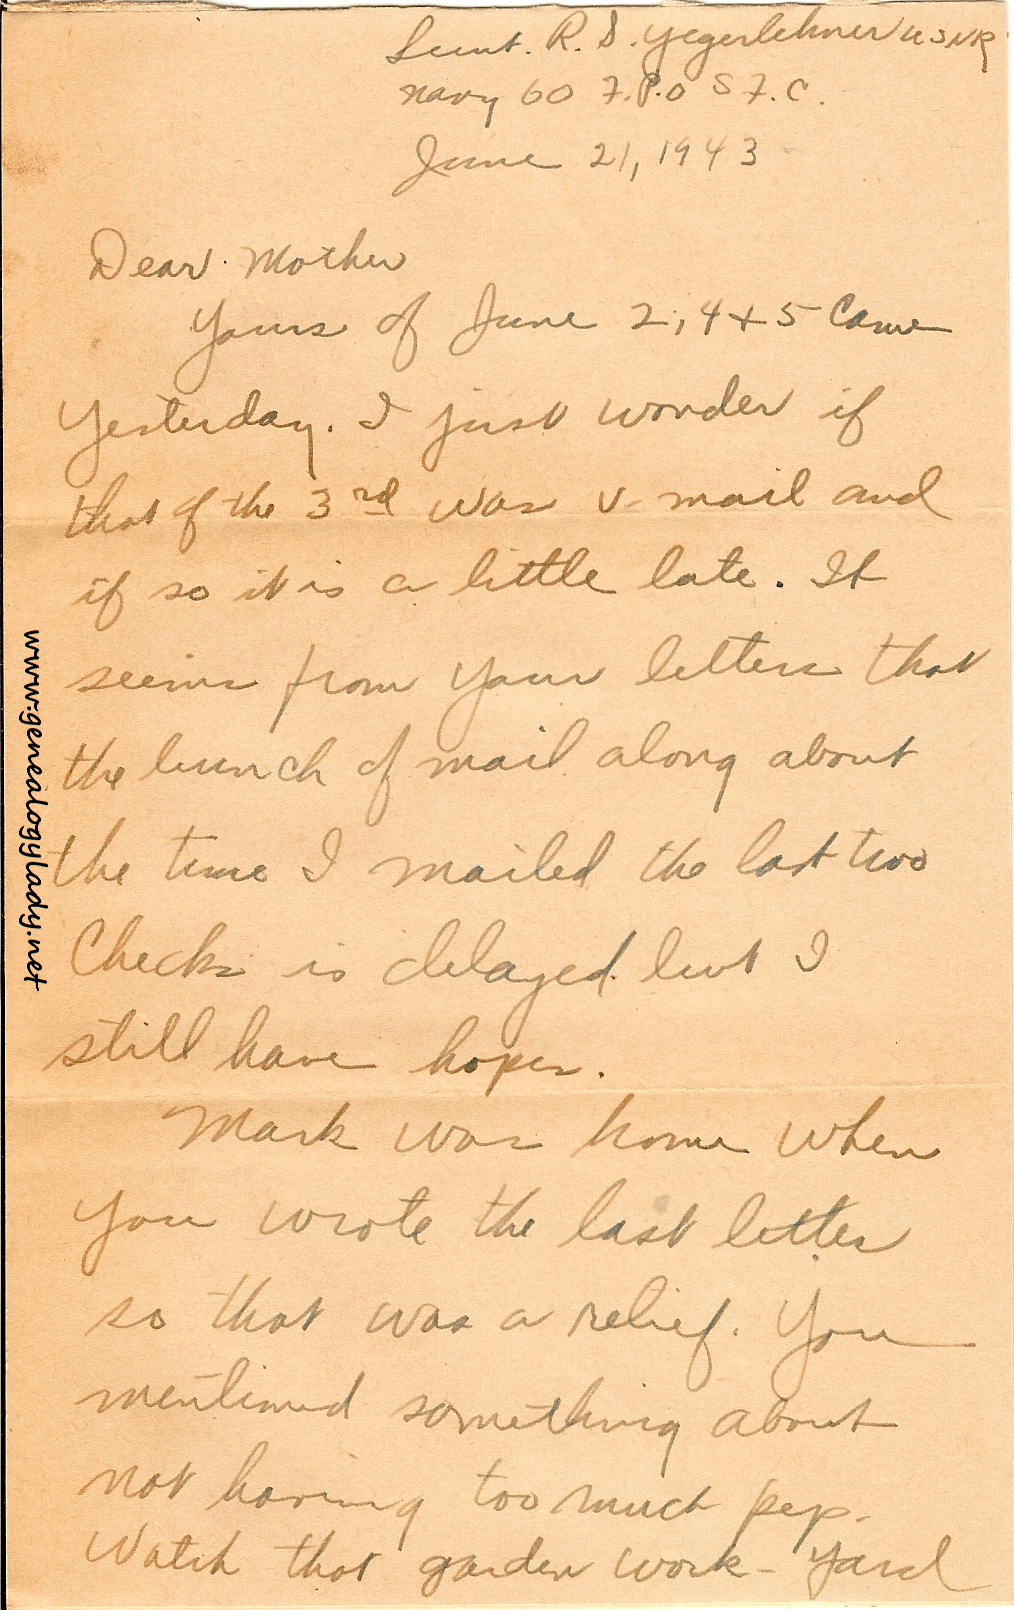 Lieut. R. S. Yegerlehner USNR
Navy 60 F.P.O S F. C.
June 21, 1943
Dear Mother
Yours of June 2, 4 + 5 Came
Yesterday. I just wonder if
that of the 3rd was V-mail and
if so it is a little late. It
seems from your letters that
the bunch of mail along about
the time I mailed the last two
Checks is delayed but I
still have hopes.
Mark was home when
you wrote the last letter
so that was a relief. You
mentioned something about
not having too much pep.
Watch that garden work - Yard
www.genealogylady.net